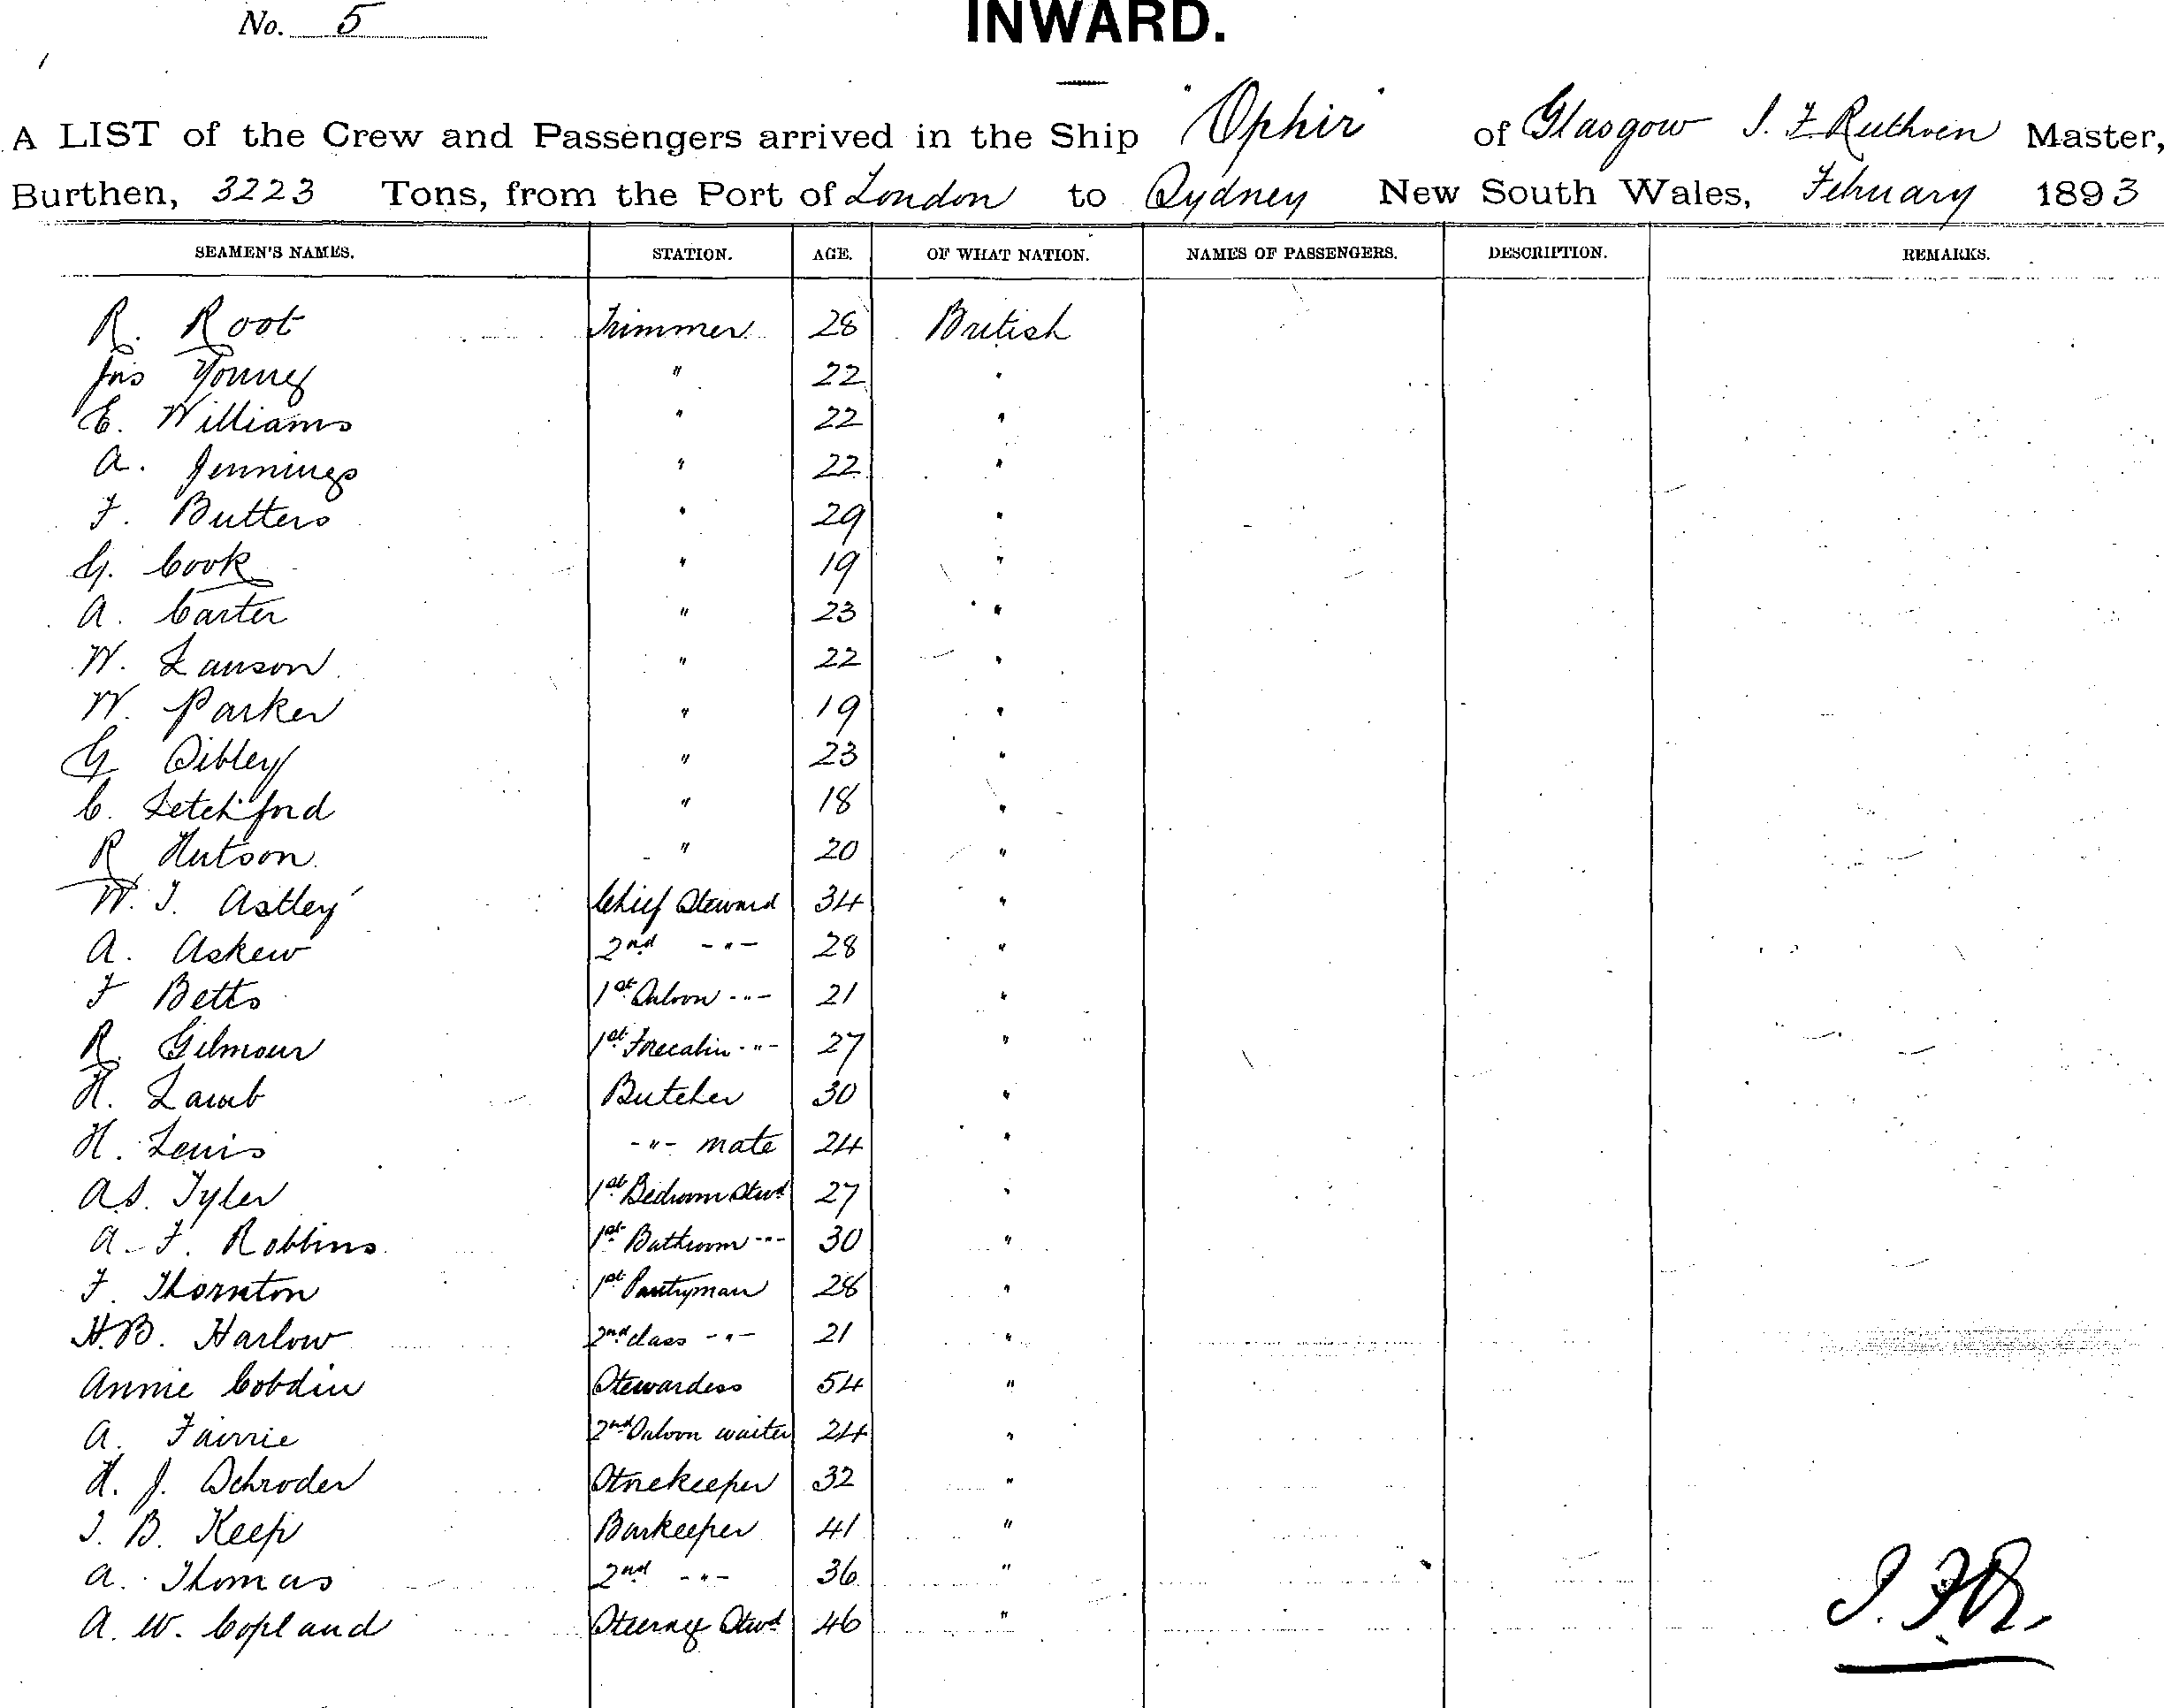 No. 5
INWARD.
A LIST of the Crew and Passengers arrived in the Ship "Ophir" of Glasgow J. F. Ruthven Master,
Burthen, 3223 Tons, from the Port of London to Sydney New South Wales, February 1893
SEAMEN'S NAMES. STATION. AGE. OF WHAT NATION. NAMES OF PASSENGERS. DESCRIPTION. REMARKS.
R. Root Trimmer 28 British
Jas Young " 22 "
E. Williams " 22 "
A. Jennings " 22 "
F. Butters " 29 "
G. Cook " 19 "
A. Carter " 23 "
W. Lawson " 22 "
W. Parker " 19 "
G Sibley " 23 "
C. Letchford " 18 "
R Hutson " 20 "
W. T. Astley Chief Steward 34 "
A. Askew 2nd -"- 28 "
F Betts 1st Saloon -"- 21 "
R. Gilmour 1st Forecabin -"- 27 "
H. Lamb Butcher 30 "
H. Lewis -"- mate 24 "
A.S. Tyler 1st Bedroom Stwd 27 "
A. F. Robbins 1st Bathroom -"- 30 "
F. Thornton 1st Pantryman 28 "
H.B. Harlow 2nd class -"- 21 "
Annie Cobdin Stewardess 54 "
A. Fairrie 2nd Saloon waiter 24 "
H. J. Schroder Storekeeper 32 "
J. B. Keep Barkeeper 41 "
A. Thomas 2nd -"- 36 "
A. W. Copland Steerage Stwd 46 "
J. F. R.